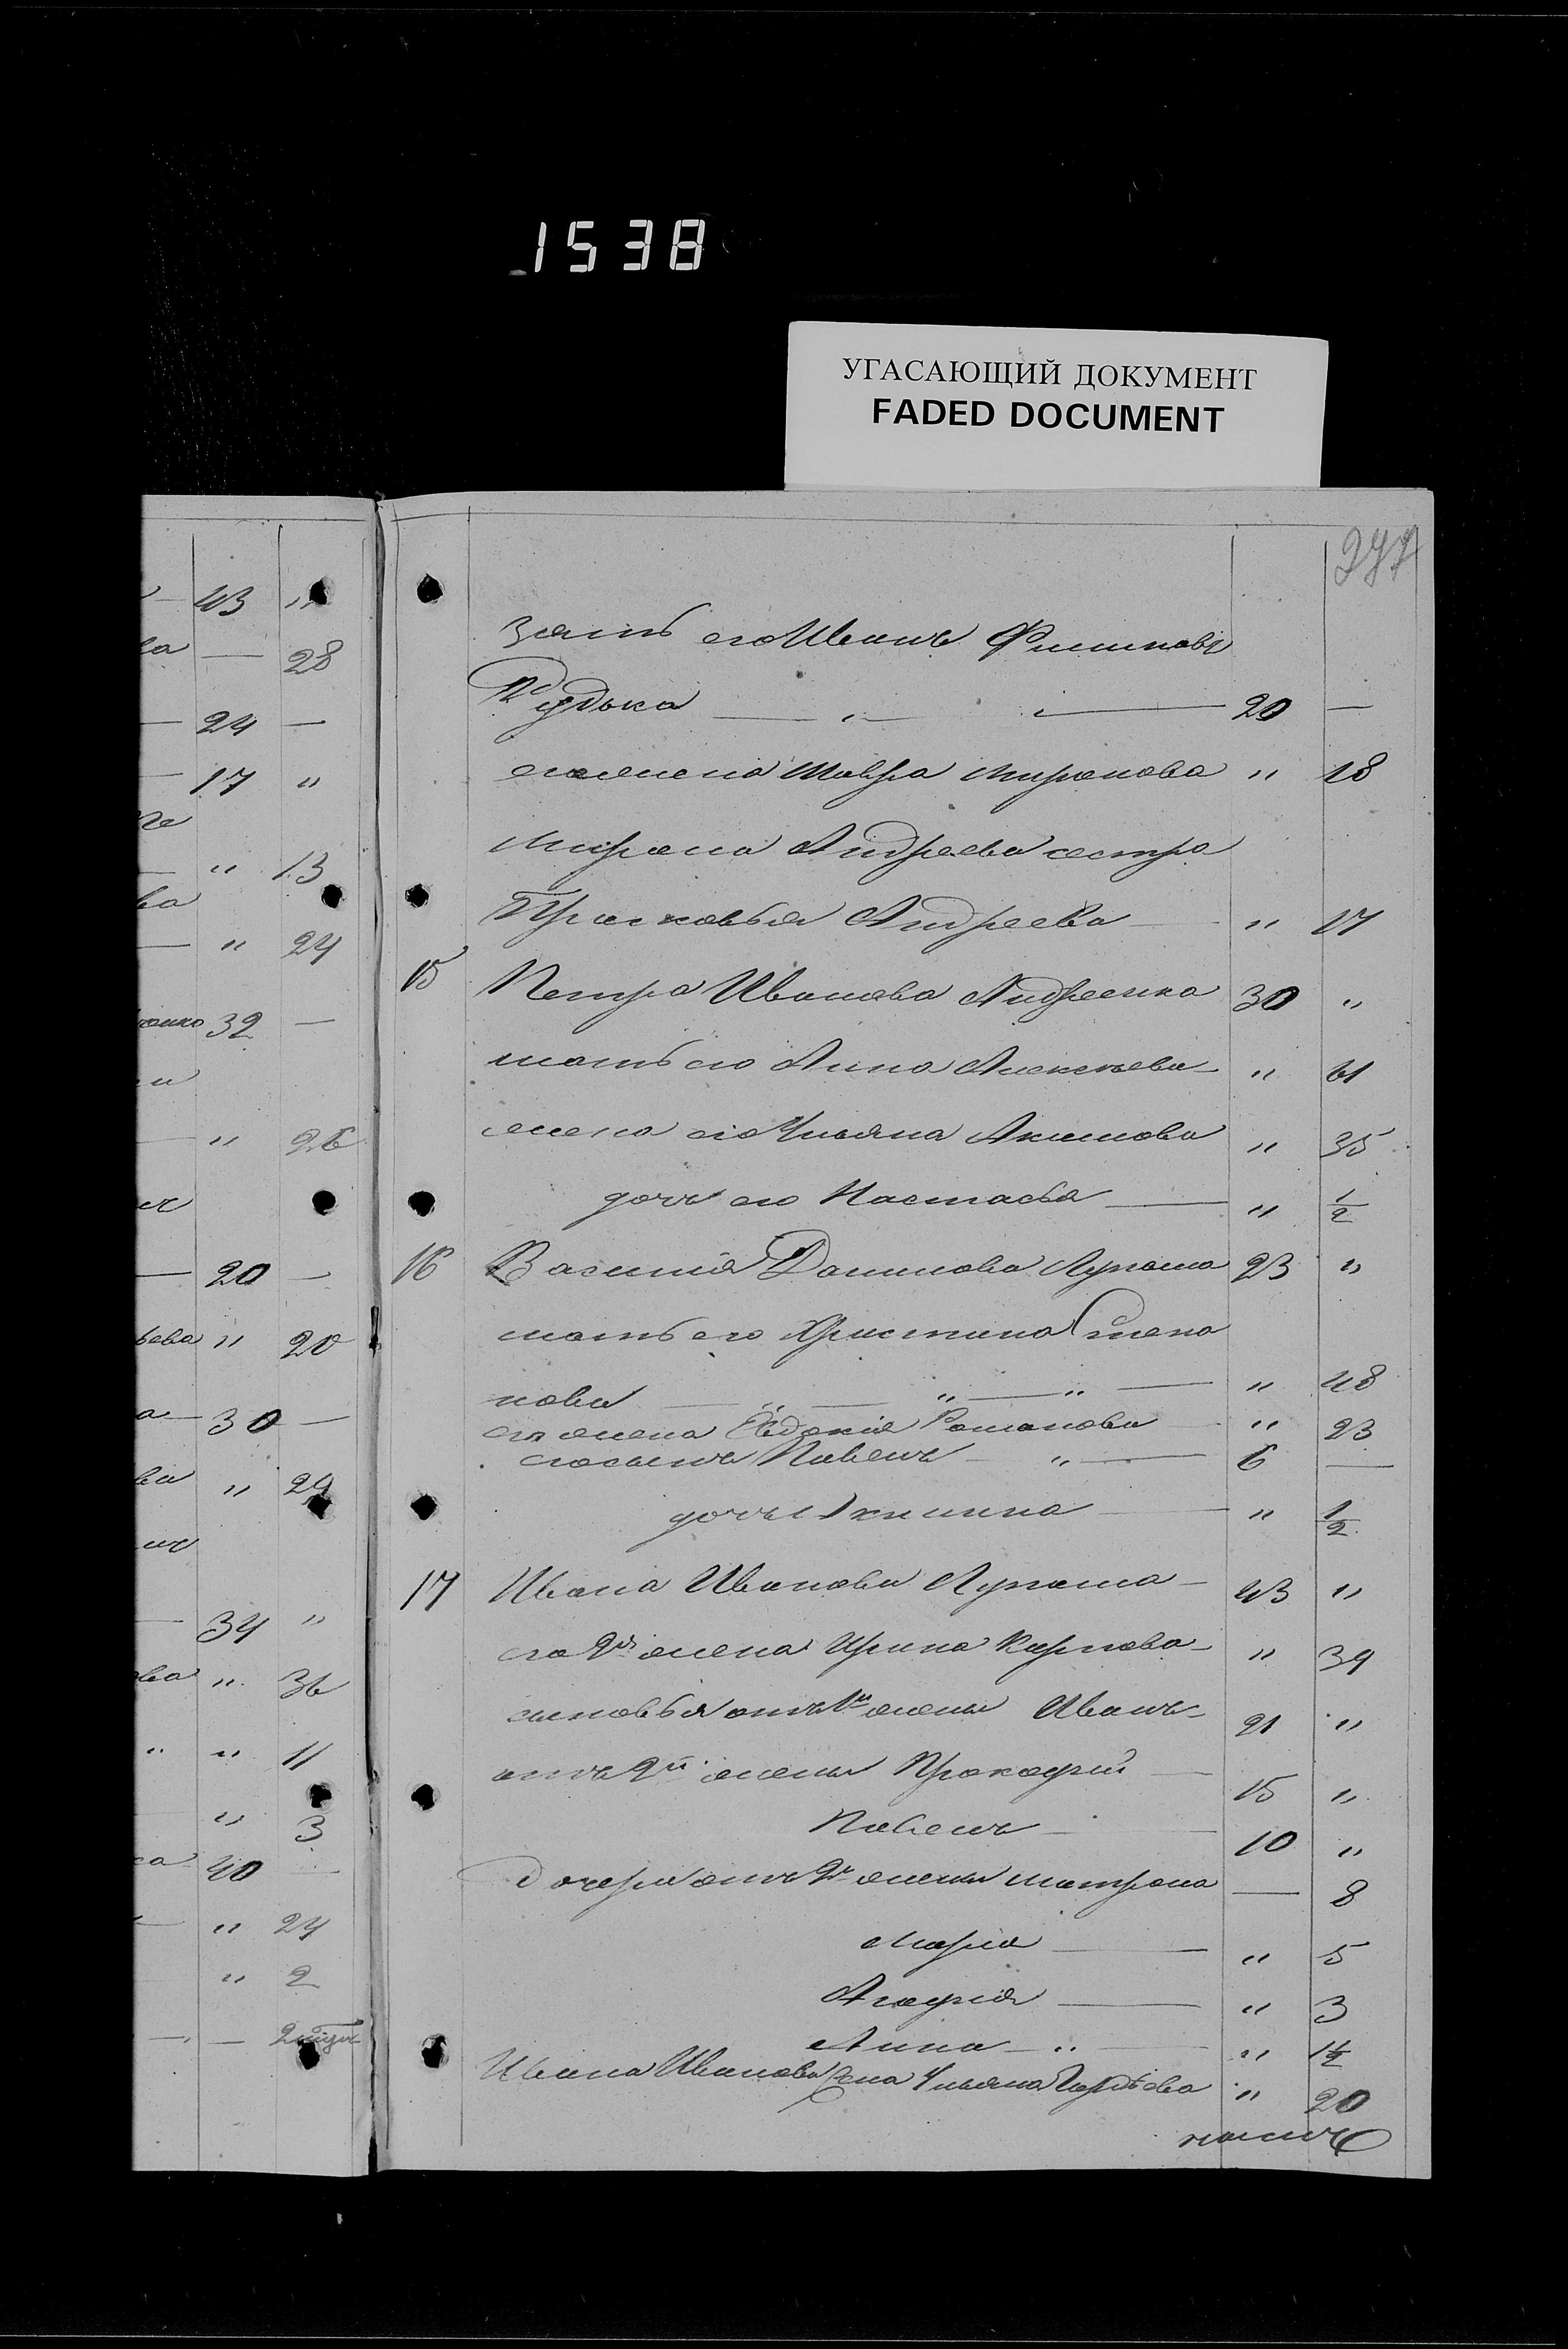 1538
УГАСАЮЩИЙ ДОКУМЕНТ
FADED DOCUMENT
43 "
— 28
24 —
17 "
" 13
" 24
32 —
" 26
20 —
ьева " 20
30 —
" 29
34 "
" 36
" " 11
" 3
40 —
" 24
" 2
— —
зять его Иванъ Филиповъ
Рудько — " — 20 —
его жена Мавра Миронова " 18
Мирона Андреева сестра
Прасковья Андреева — " 17
15 Петра Иванова Андреенка 30 "
мать его Анна Алексеева — " 61
жена его Ульяна Акимова " 35
дочь его Настасья — " 1/2
16 Василия Данилова Лупаша 23 "
мать его Христина Степа
нова — " — " — " 48
его жена Евдокия Романова " 23
его сынъ Павелъ — " — 6 —
дочь Акилина — " 1/2
17 Ивана Иванова Лупаша — 43 "
его 2я жена Ирина Карпова — " 39
сыновья отъ 1й жены Иванъ — 21 "
отъ 2й жены Прокофий — 15 "
Павелъ — 10 "
дочери отъ 2й жены Матрона — 8
Мария — " 5
Агафия — " 3
Анна — " — " 1 1/2
Ивана Иванова жена Ульяна " 20